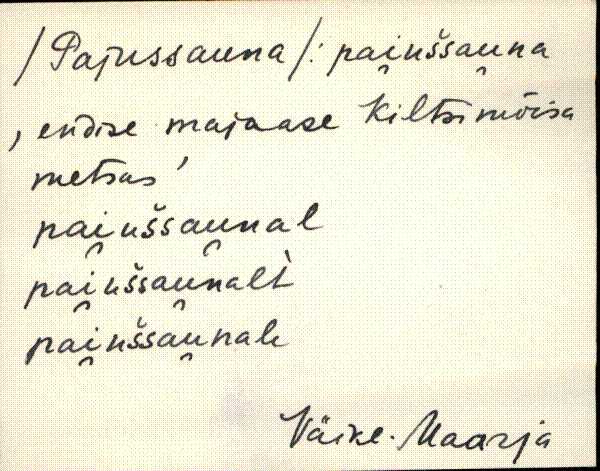 /Pajussauna/: pai̯uššau̯na
‚ endise majaase Kiltsi mõisa
metsas ’
pai̯uššau̯nal
pai̯uššau̯nalt̀
pai̯uššau̯nale
Väike-Maarja